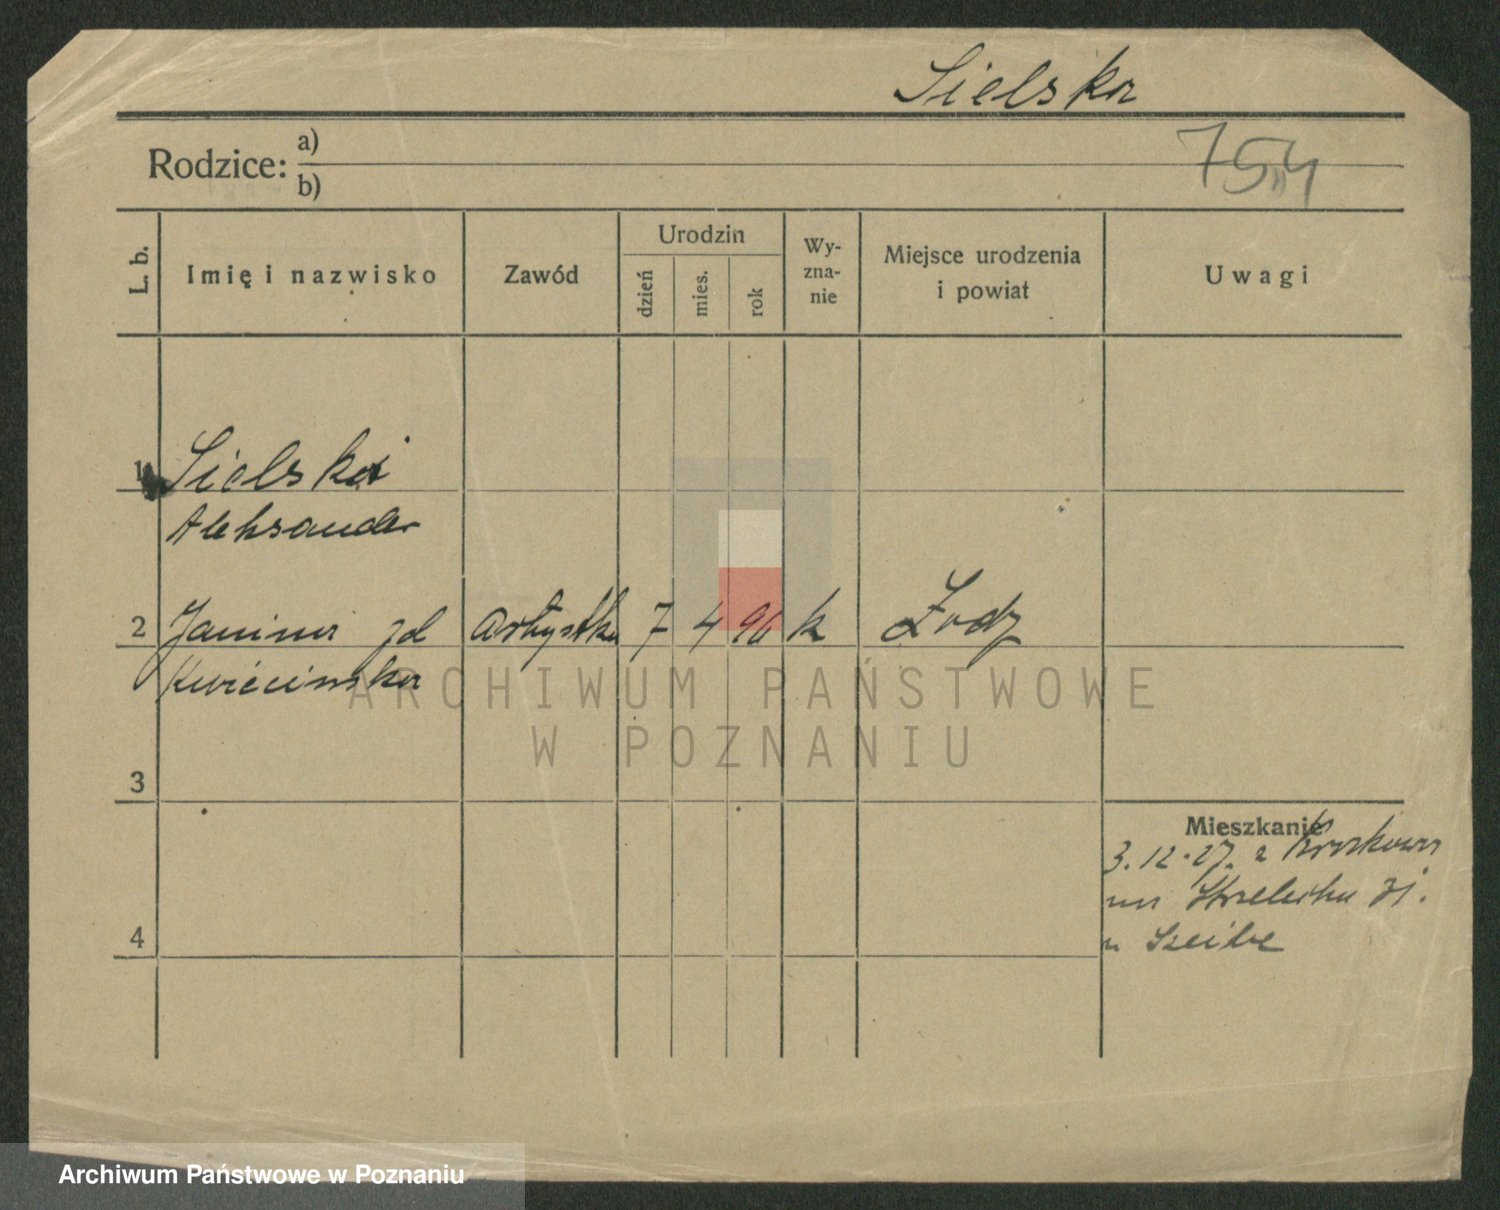 Sielska
Rodzice: a)
b)
754
L. b.
Imię i nazwisko
Zawód
Urodzin
dzień
mies.
rok
Wy-
zna-
nie
Miejsce urodzenia
i powiat
Uwagi
1 Sielski
Aleksander
2 Janina zd artystka 7 4 96 k Łodz
Kwiecinska
3
4
Mieszkanie
3.12.27. z Krakowa
na Strzelecka 31.
u Szeibe
ARCHIWUM PAŃSTWOWE
W POZNANIU
Archiwum Państwowe w Poznaniu